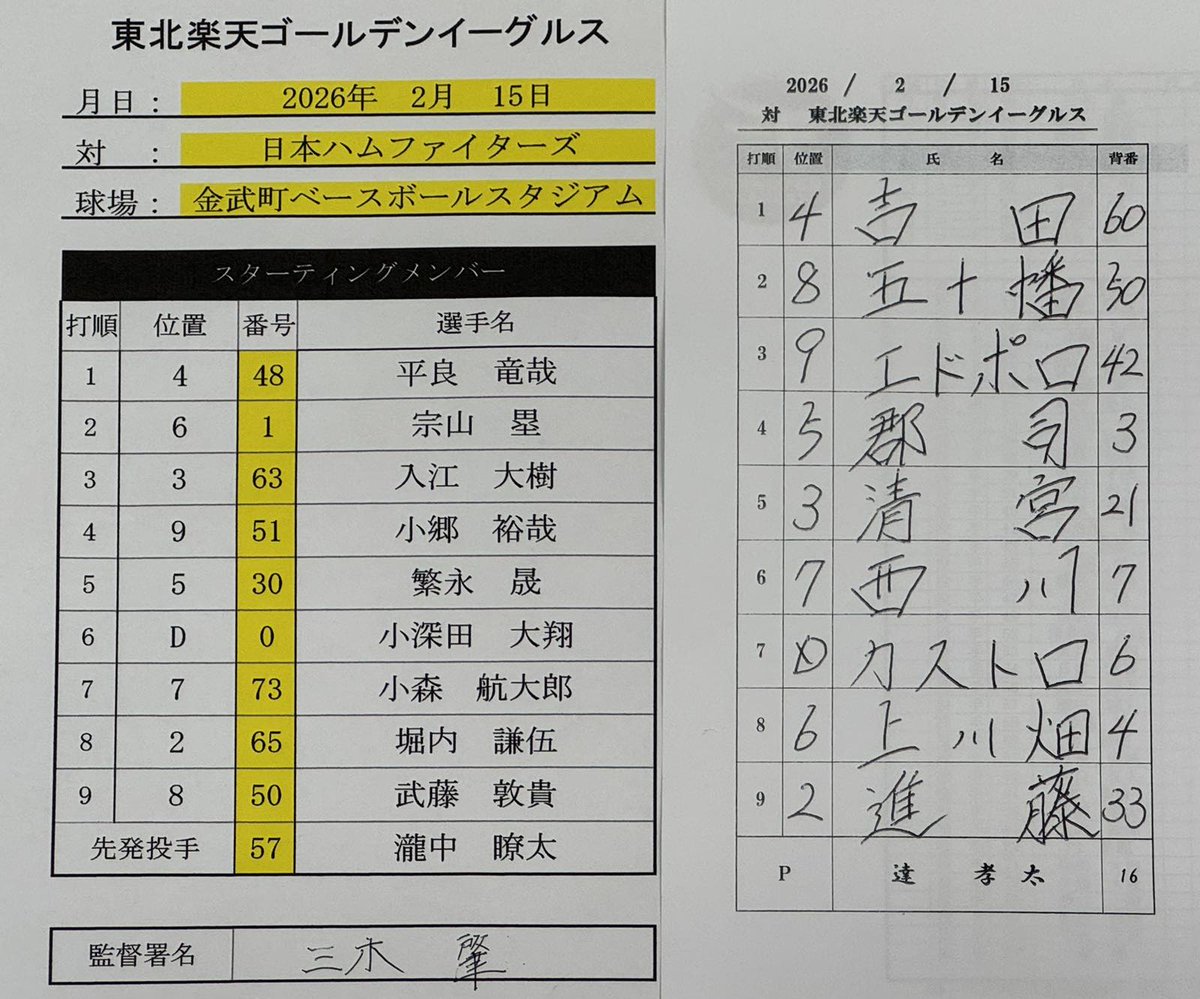 東北楽天ゴールデンイーグルス
月日： 2026年 2月 15日
対 ： 日本ハムファイターズ
球場： 金武町ベースボールスタジアム
スターティングメンバー
打順 位置 番号 選手名
1 4 48 平良 竜哉
2 6 1 宗山 塁
3 3 63 入江 大樹
4 9 51 小郷 裕哉
5 5 30 繁永 晟
6 D 0 小深田 大翔
7 7 73 小森 航大郎
8 2 65 堀内 謙伍
9 8 50 武藤 敦貴
先発投手 57 瀧中 瞭太
監督署名 三木 肇
2026 / 2 / 15
対 東北楽天ゴールデンイーグルス
打順 位置 氏 名 背番
1 4 吉田 60
2 8 五十幡 50
3 9 エドポロ 42
4 5 郡司 3
5 3 清宮 21
6 7 西川 7
7 D カストロ 6
8 6 上川畑 4
9 2 進藤 33
P 達 孝太 16